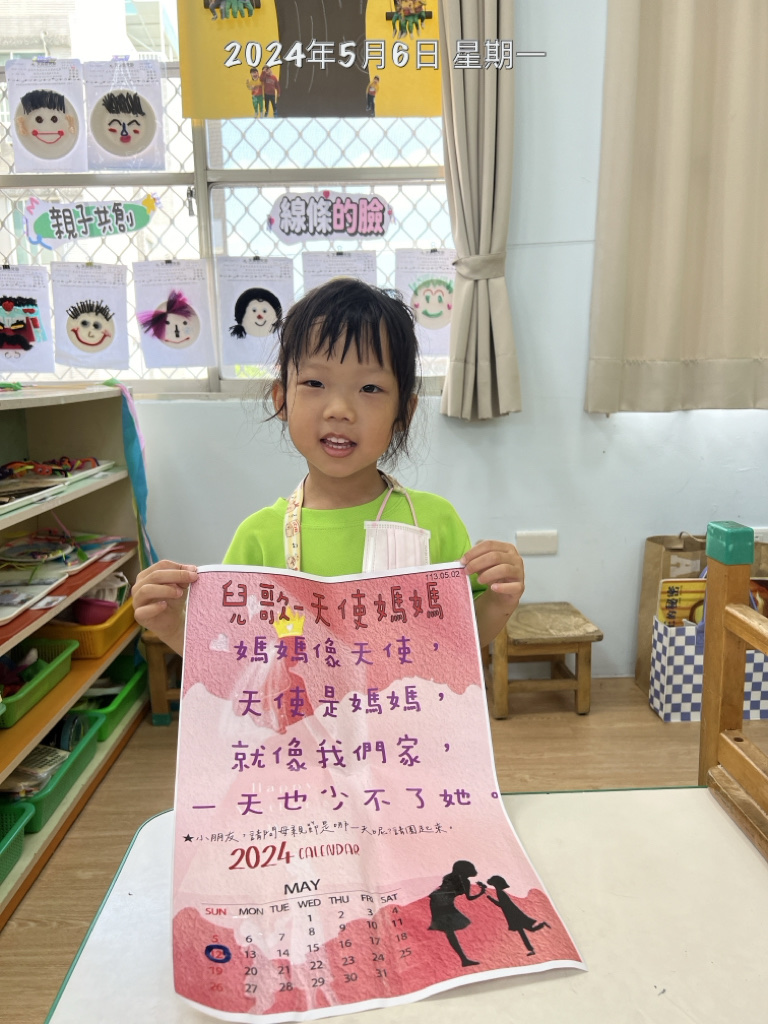 2024年5月6日 星期一
親子共創
線條的臉
113.05.02
兒歌-天使媽媽
媽媽像天使，
天使是媽媽，
就像我們家，
一天也少不了她。
★小朋友，請問母親節是哪一天呢?請圈起來。
2024 CALENDAR
MAY
SUN MON TUE WED THU FRI SAT
1 2 3 4
5 6 7 8 9 10 11
12 13 14 15 16 17 18
19 20 21 22 23 24 25
26 27 28 29 30 31